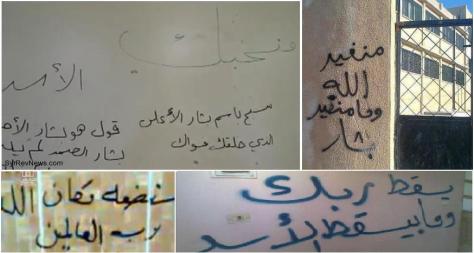 ونحبك
الأسد
قول هو بشار الأ
بشار الصمد لم يلد
سبح باسم بشار الأعلى
الذي خلقك فسواك
SyrRevNews.com
منغير
الله
وما منغير
بشار
سنضعه مكان الله
رب العالمين
يسقط ربك
وما بيسقط الأسد